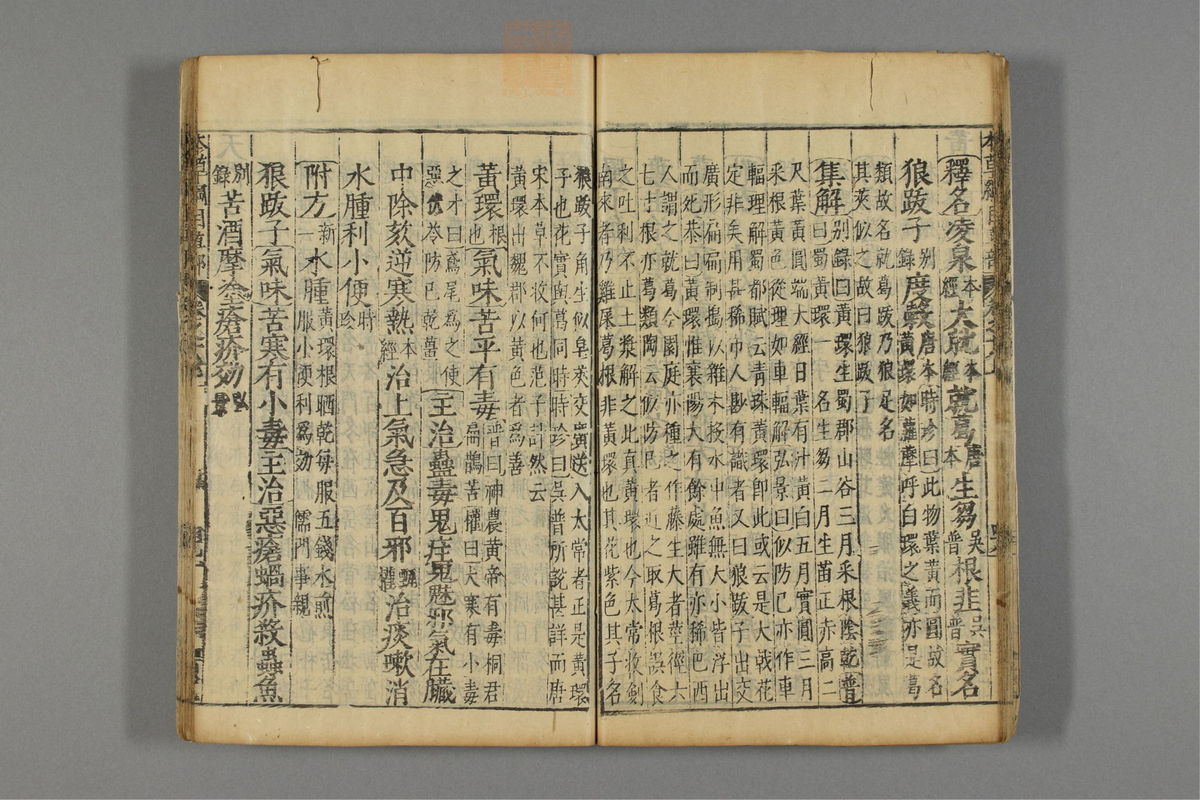 釋名凌泉本經大就本經就葛唐本生芻吳普根韭吳普實名
狼跋子別錄度穀唐本時珍曰此物葉黃而圓故名黃環如蘿藦呼白環之義亦是葛
類故名就葛跋乃狼足名其莢似之故曰狼跋子
集解別錄曰黃環生蜀郡山谷三月采根陰乾普曰蜀黃環一名生芻二月生苗正赤高二
尺葉黃圓端大經日葉有汁黃白五月實圓三月采根黃色從理如車輻解弘景曰似防已亦作車
輻理解蜀都賦云青珠黃環即此或云是大戟花定非矣用甚稀市人尠有識者又曰狼跋子出交
廣形扁扁制搗以雜木投水中魚無大小皆浮出而死恭曰黃環惟襄陽大有餘處雖有亦稀巴西
人謂之就葛今園庭亦種之作藤生大者莖徑六七寸根亦葛類陶云似防已者近之取葛根誤食
之吐利不止土漿解之此真黃環也今太常收劍南來者乃雞屎葛根非黃環也其花紫色其子名
狼跋子角生似皂莢交廣送入太常者正是黃環子也花實與葛同時時珍曰吳普所說甚詳而唐
宋本草不收何也范子計然云黃環出魏郡以黃色者為善
黃環根也氣味苦平有毒普曰神農黃帝有毒桐君扁鵲苦權曰大寒有小毒
之才曰鳶尾為之使惡伏苓防已乾薑主治蠱毒鬼疰鬼魅邪氣在臟
中除欬逆寒熱本經治上氣急及百邪甄權治痰嗽消
水腫利小便時珍
附方新一水腫黃環根晒乾每服五錢水煎服小便利為効儒門事親
狼跋子氣味苦寒有小毒主治惡瘡蝸疥殺蟲魚
別錄苦酒摩塗瘡疥効弘景